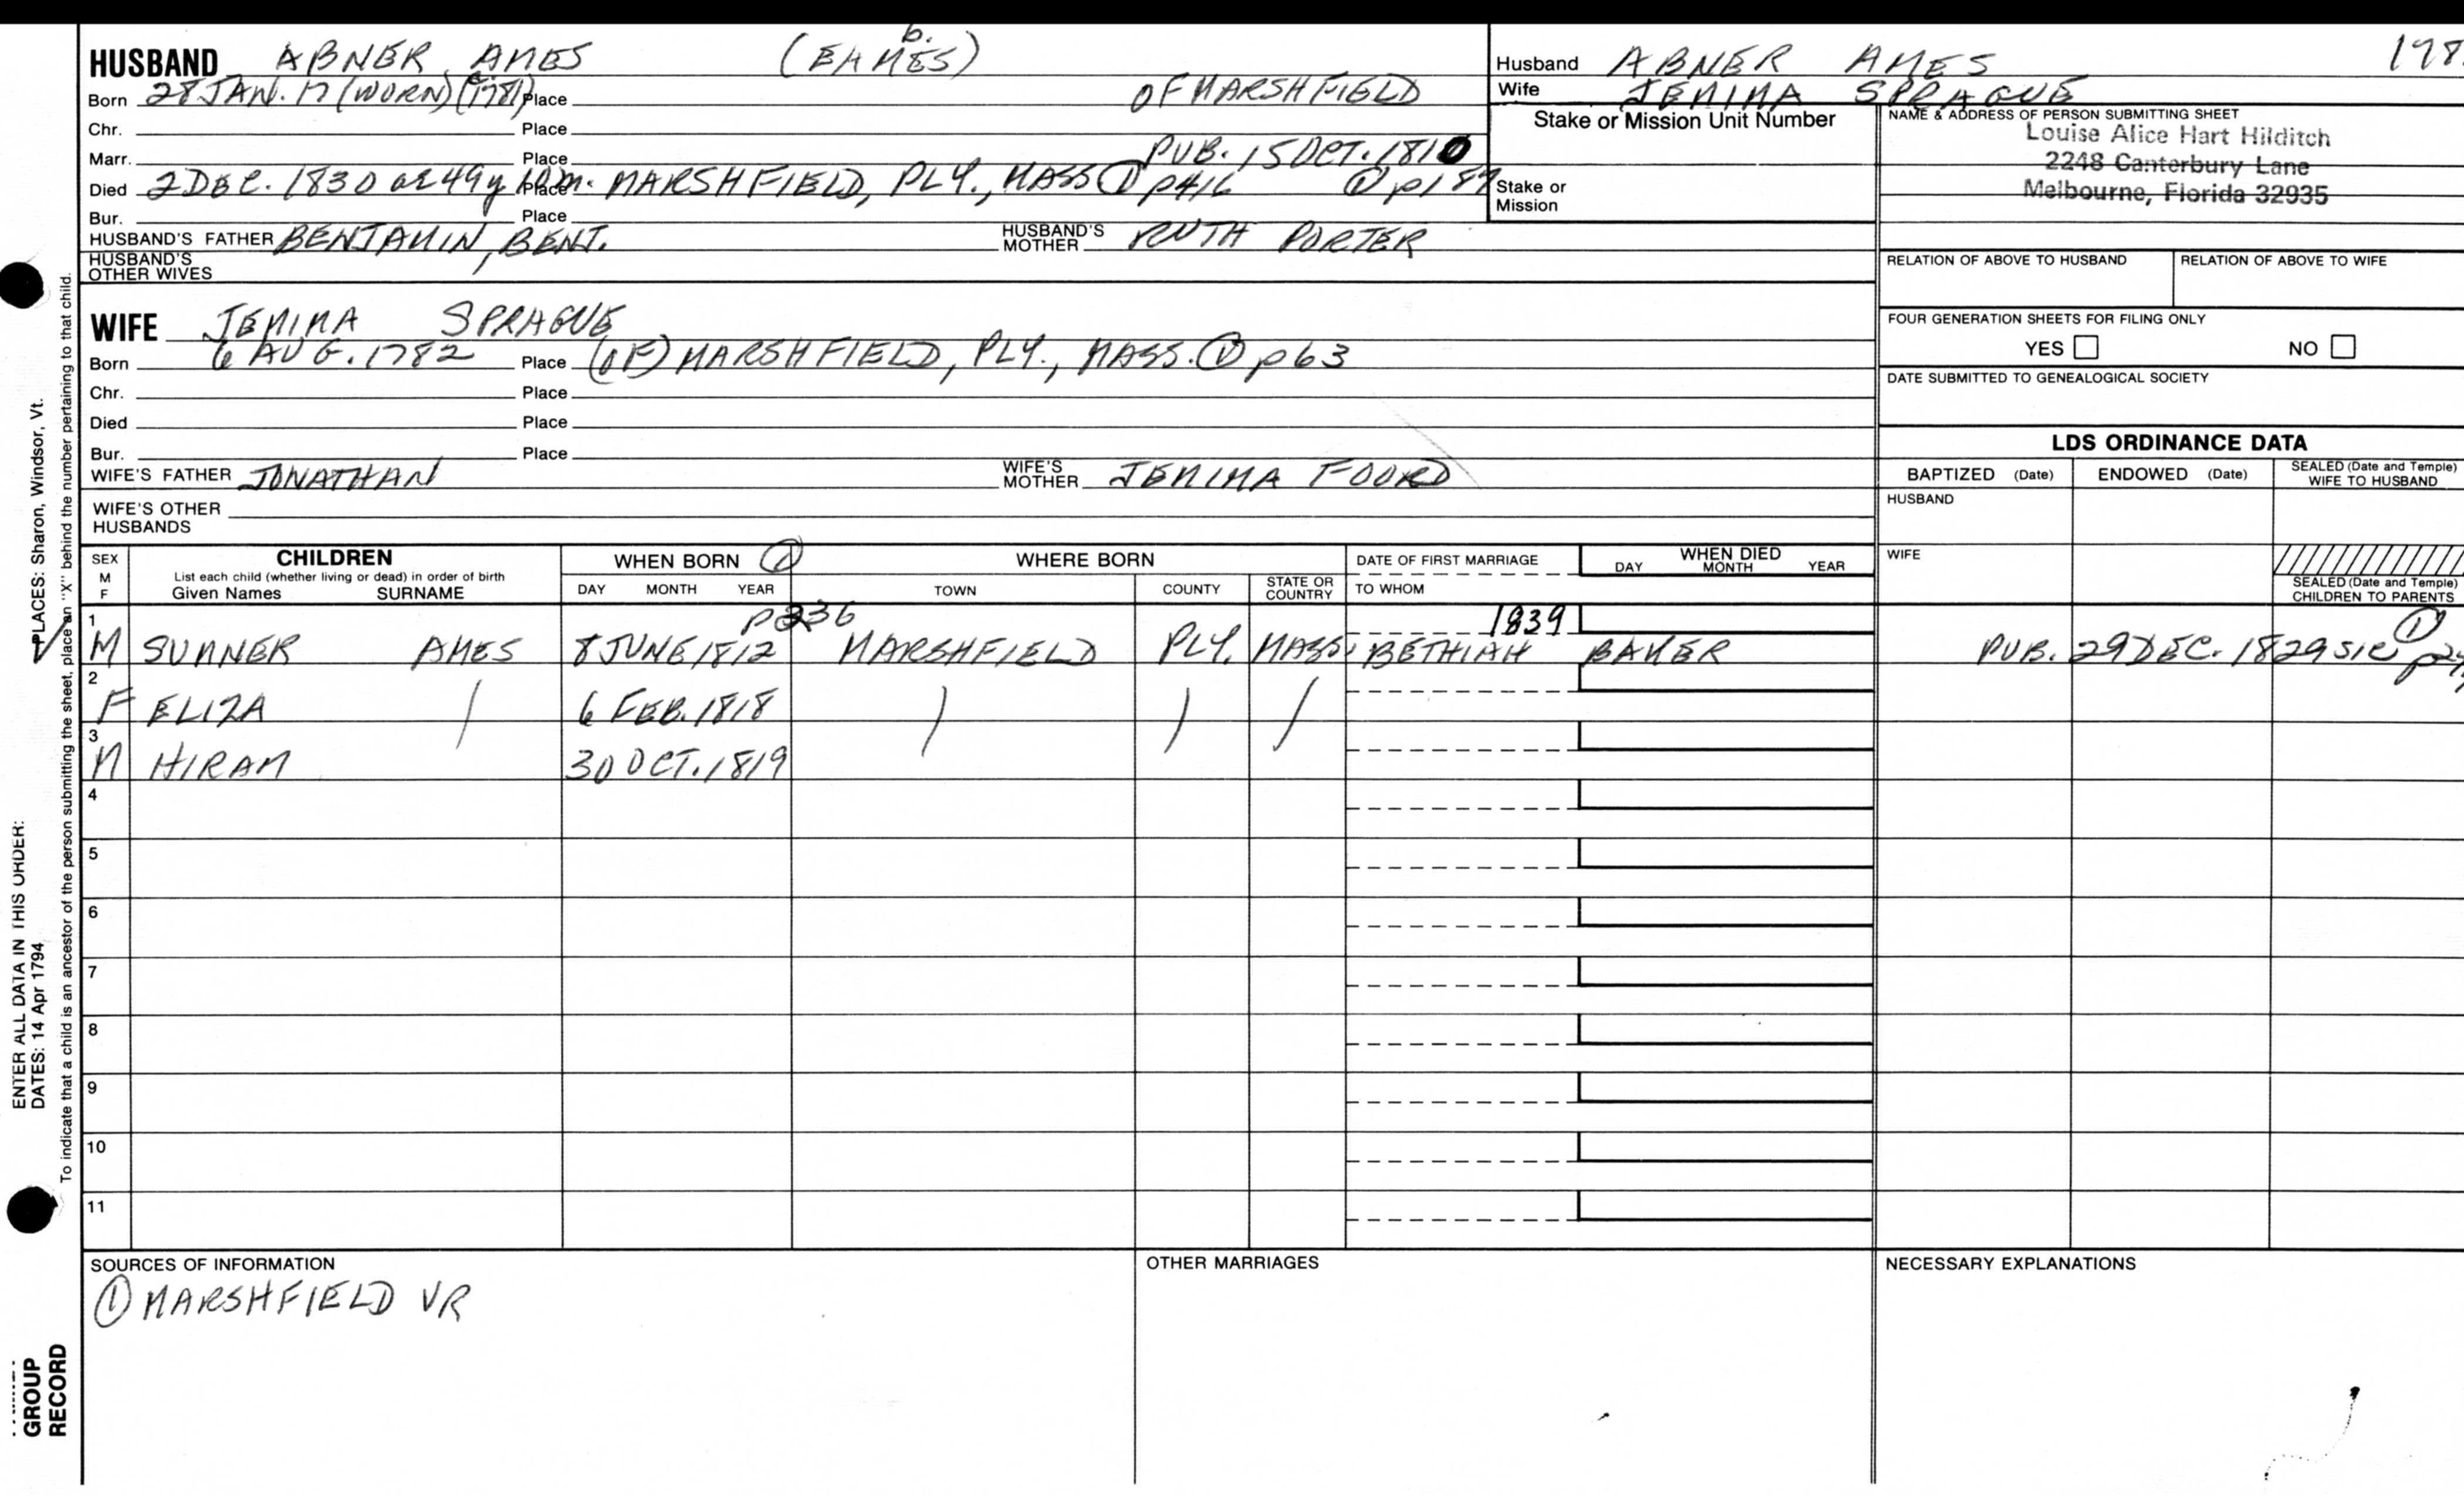 HUSBAND ABNER AMES (b. EAMES)
Born 28 JAN. 17 (WORN) (c. 1781) Place OF MARSHFIELD
Chr. Place
Marr. Place PUB. 15 OCT. 1810
Died 2 DEC. 1830 ae 49y 10m. Place MARSHFIELD, PLY., MASS ① p416 ① p187
Bur. Place
HUSBAND'S FATHER BENJAMIN, BENJ. HUSBAND'S MOTHER RUTH PORTER
HUSBAND'S OTHER WIVES
Husband ABNER AMES 198
Wife JEMIMA SPRAGUE
Stake or Mission Unit Number
Stake or Mission
NAME & ADDRESS OF PERSON SUBMITTING SHEET
Louise Alice Hart Hilditch
2248 Canterbury Lane
Melbourne, Florida 32935
RELATION OF ABOVE TO HUSBAND RELATION OF ABOVE TO WIFE
FOUR GENERATION SHEETS FOR FILING ONLY
YES NO
DATE SUBMITTED TO GENEALOGICAL SOCIETY
WIFE JEMIMA SPRAGUE
Born 6 AUG. 1782 Place (OF) MARSHFIELD, PLY., MASS. ① p63
Chr. Place
Died Place
Bur. Place
WIFE'S FATHER JONATHAN WIFE'S MOTHER JEMIMA FOORD
WIFE'S OTHER HUSBANDS
LDS ORDINANCE DATA
BAPTIZED (Date) ENDOWED (Date) SEALED (Date and Temple) WIFE TO HUSBAND
HUSBAND
WIFE
SEALED (Date and Temple) CHILDREN TO PARENTS
SEX M F CHILDREN List each child (whether living or dead) in order of birth Given Names SURNAME
WHEN BORN ① DAY MONTH YEAR
WHERE BORN TOWN COUNTY STATE OR COUNTRY
DATE OF FIRST MARRIAGE TO WHOM
WHEN DIED DAY MONTH YEAR
p236 1839
1 M SUMNER AMES 8 JUNE 1812 MARSHFIELD PLY. MASS. BETHIAH BAKER PUB. 29 DEC. 1829 sic ①
2 F ELIZA 6 FEB. 1818
3 M HIRAM 30 OCT. 1819
4
5
6
7
8
9
10
11
SOURCES OF INFORMATION
① MARSHFIELD VR
OTHER MARRIAGES
NECESSARY EXPLANATIONS
PLACES: Sharon, Windsor, Vt.
ENTER ALL DATA IN THIS ORDER:
DATES: 14 Apr 1794
To indicate that a child is an ancestor of the person submitting the sheet, place an "X" behind the number pertaining to that child.
GROUP
RECORD